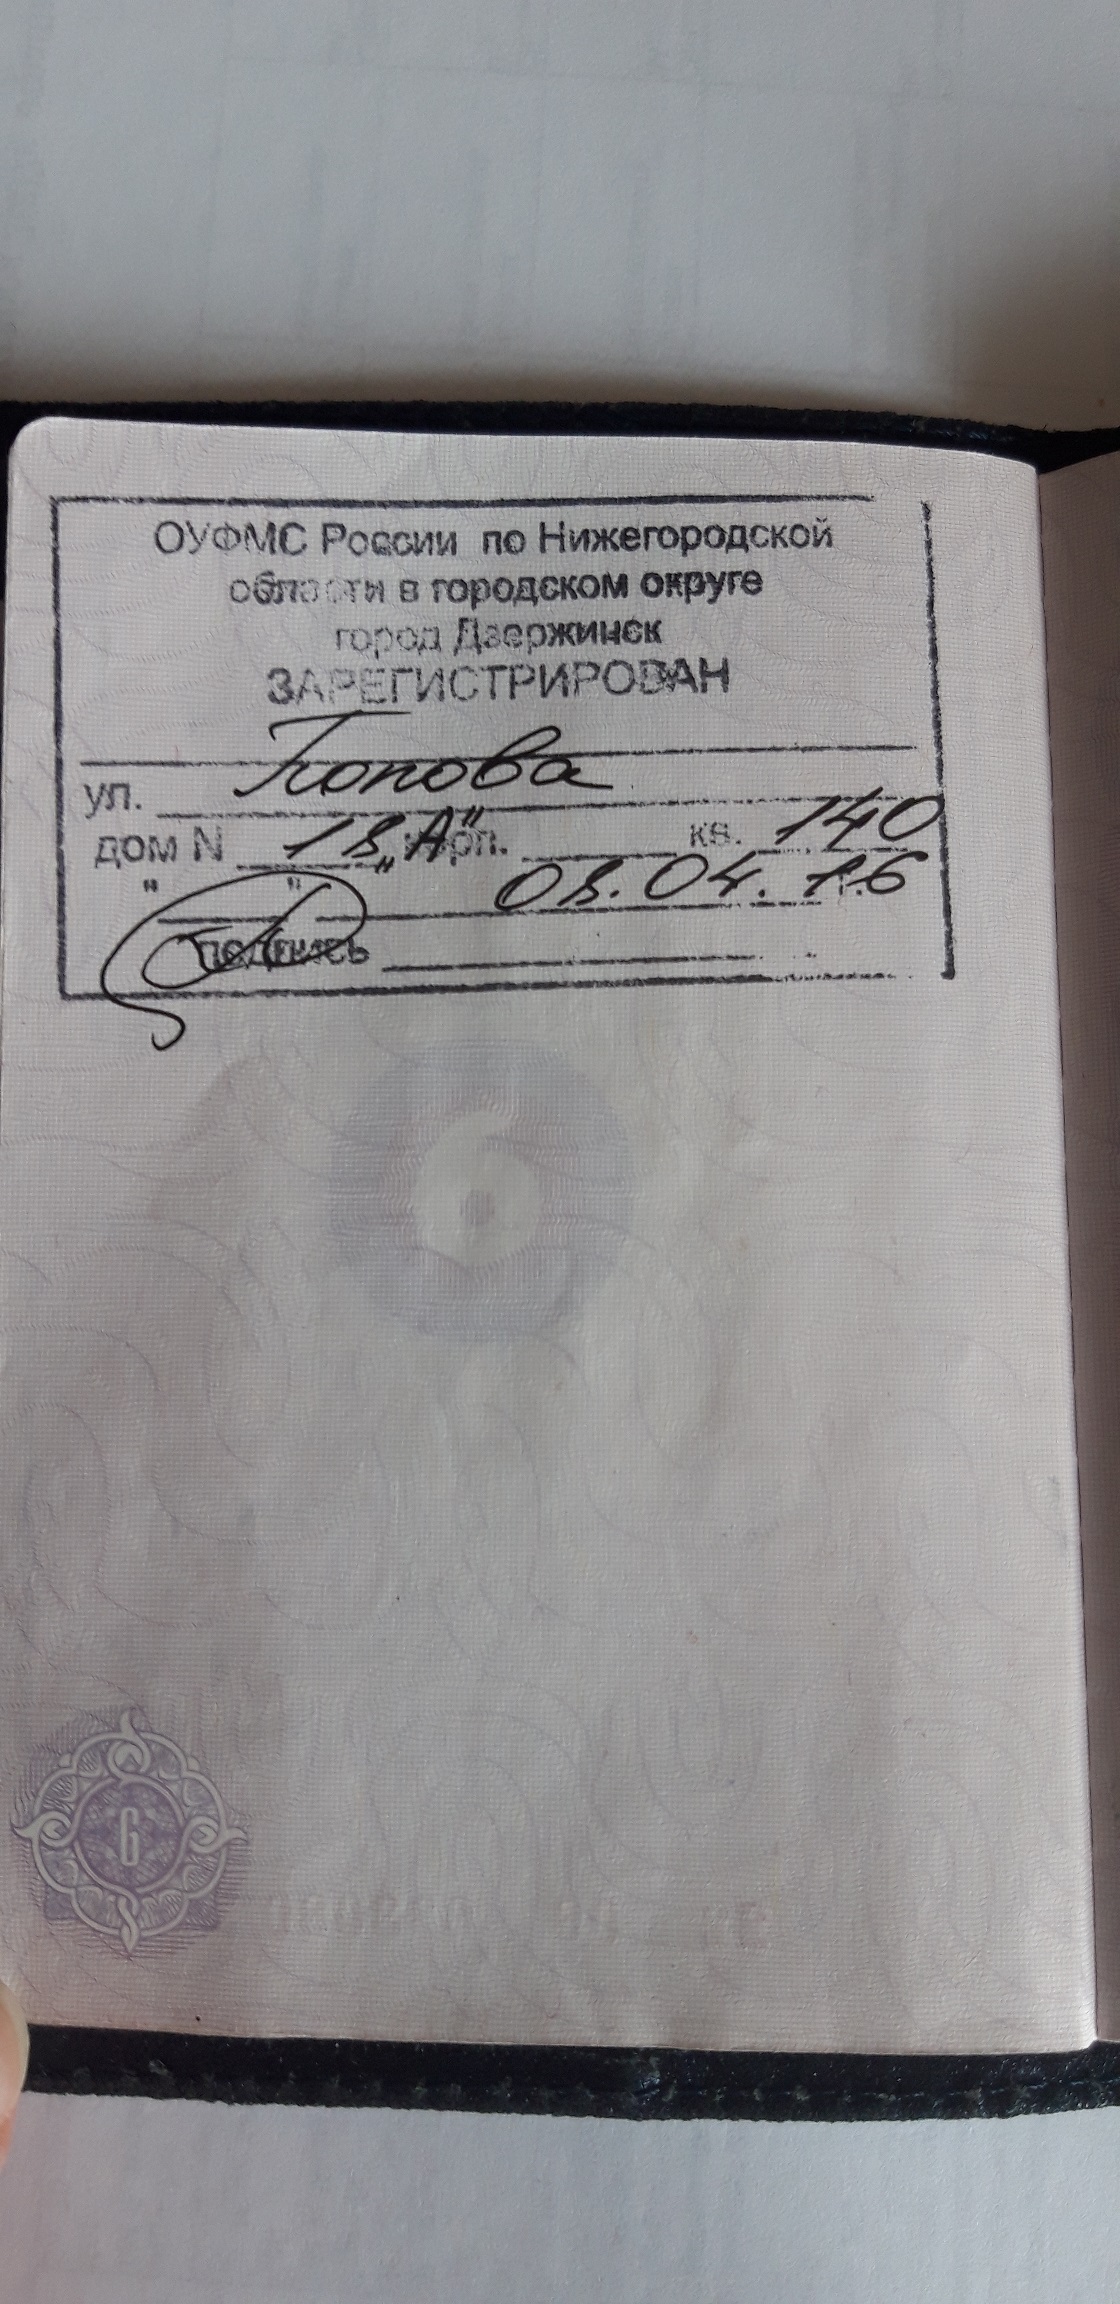 ОУФМС России по Нижегородской
области в городском округе
город Дзержинск
ЗАРЕГИСТРИРОВАН
ул. Попова
дом N 18 „А" корп. кв. 140
" " 08.04. 16 г.
подпись
6